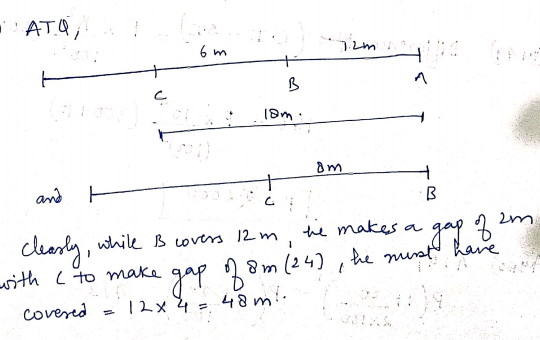 ATQ,
6 m 12m
C B A
18m.
8m
and C B
clearly, while B covers 12 m, he makes a gap of 2m
with C to make gap of 8m (24), he must have
covered = 12 x 4 = 48 m.